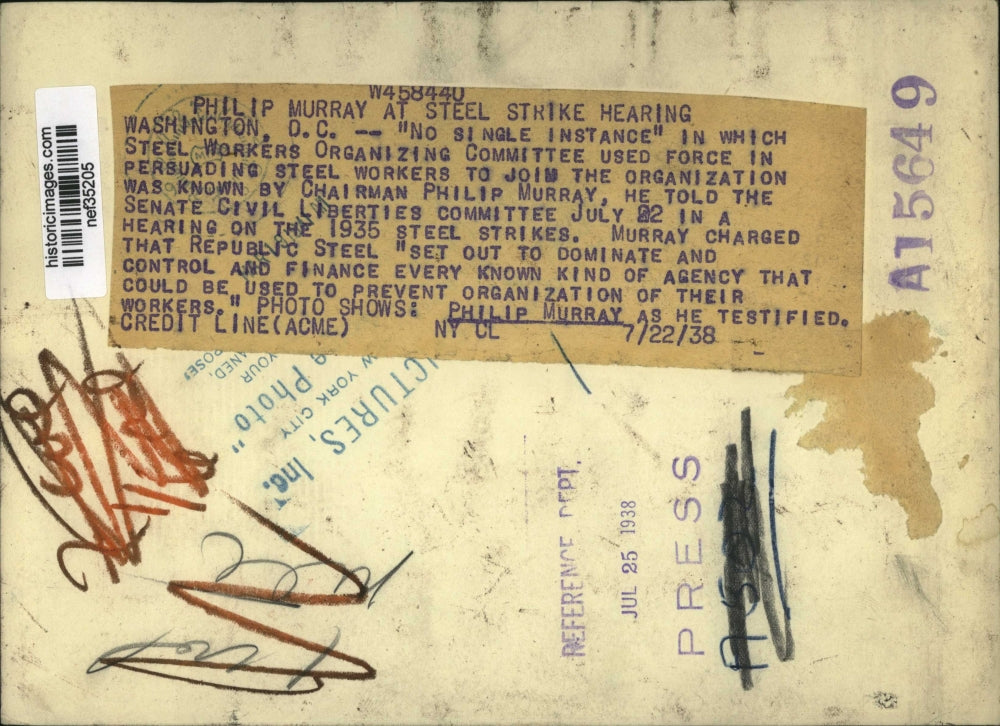 W458440
PHILIP MURRAY AT STEEL STRIKE HEARING
WASHINGTON, D.C. -- "NO SINGLE INSTANCE" IN WHICH
STEEL WORKERS ORGANIZING COMMITTEE USED FORCE IN
PERSUADING STEEL WORKERS TO JOIN THE ORGANIZATION
WAS KNOWN BY CHAIRMAN PHILIP MURRAY, HE TOLD THE
SENATE CIVIL LIBERTIES COMMITTEE JULY 22 IN A
HEARING ON THE 1935 STEEL STRIKES. MURRAY CHARGED
THAT REPUBLIC STEEL "SET OUT TO DOMINATE AND
CONTROL AND FINANCE EVERY KNOWN KIND OF AGENCY THAT
COULD BE USED TO PREVENT ORGANIZATION OF THEIR
WORKERS." PHOTO SHOWS: PHILIP MURRAY AS HE TESTIFIED.
CREDIT LINE(ACME) NY CL 7/22/38
historicimages.com
nef35205
A15649
ICTURES, Inc.
W YORK CITY
Photo"
YOUR
ANED,
POSE
REFERENCE DEPT.
JUL 25 1938
PRESS